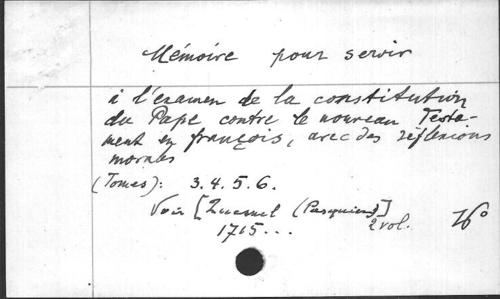 Mémoire pour servir
à l'examen de la constitution
du Pape contre le nouveau Testa-
ment en françois, avec des réflexions
morales
(Tomes): 3. 4. 5. 6.
Voir [Quesnel (Pasquier)]
1715... 2 vol.